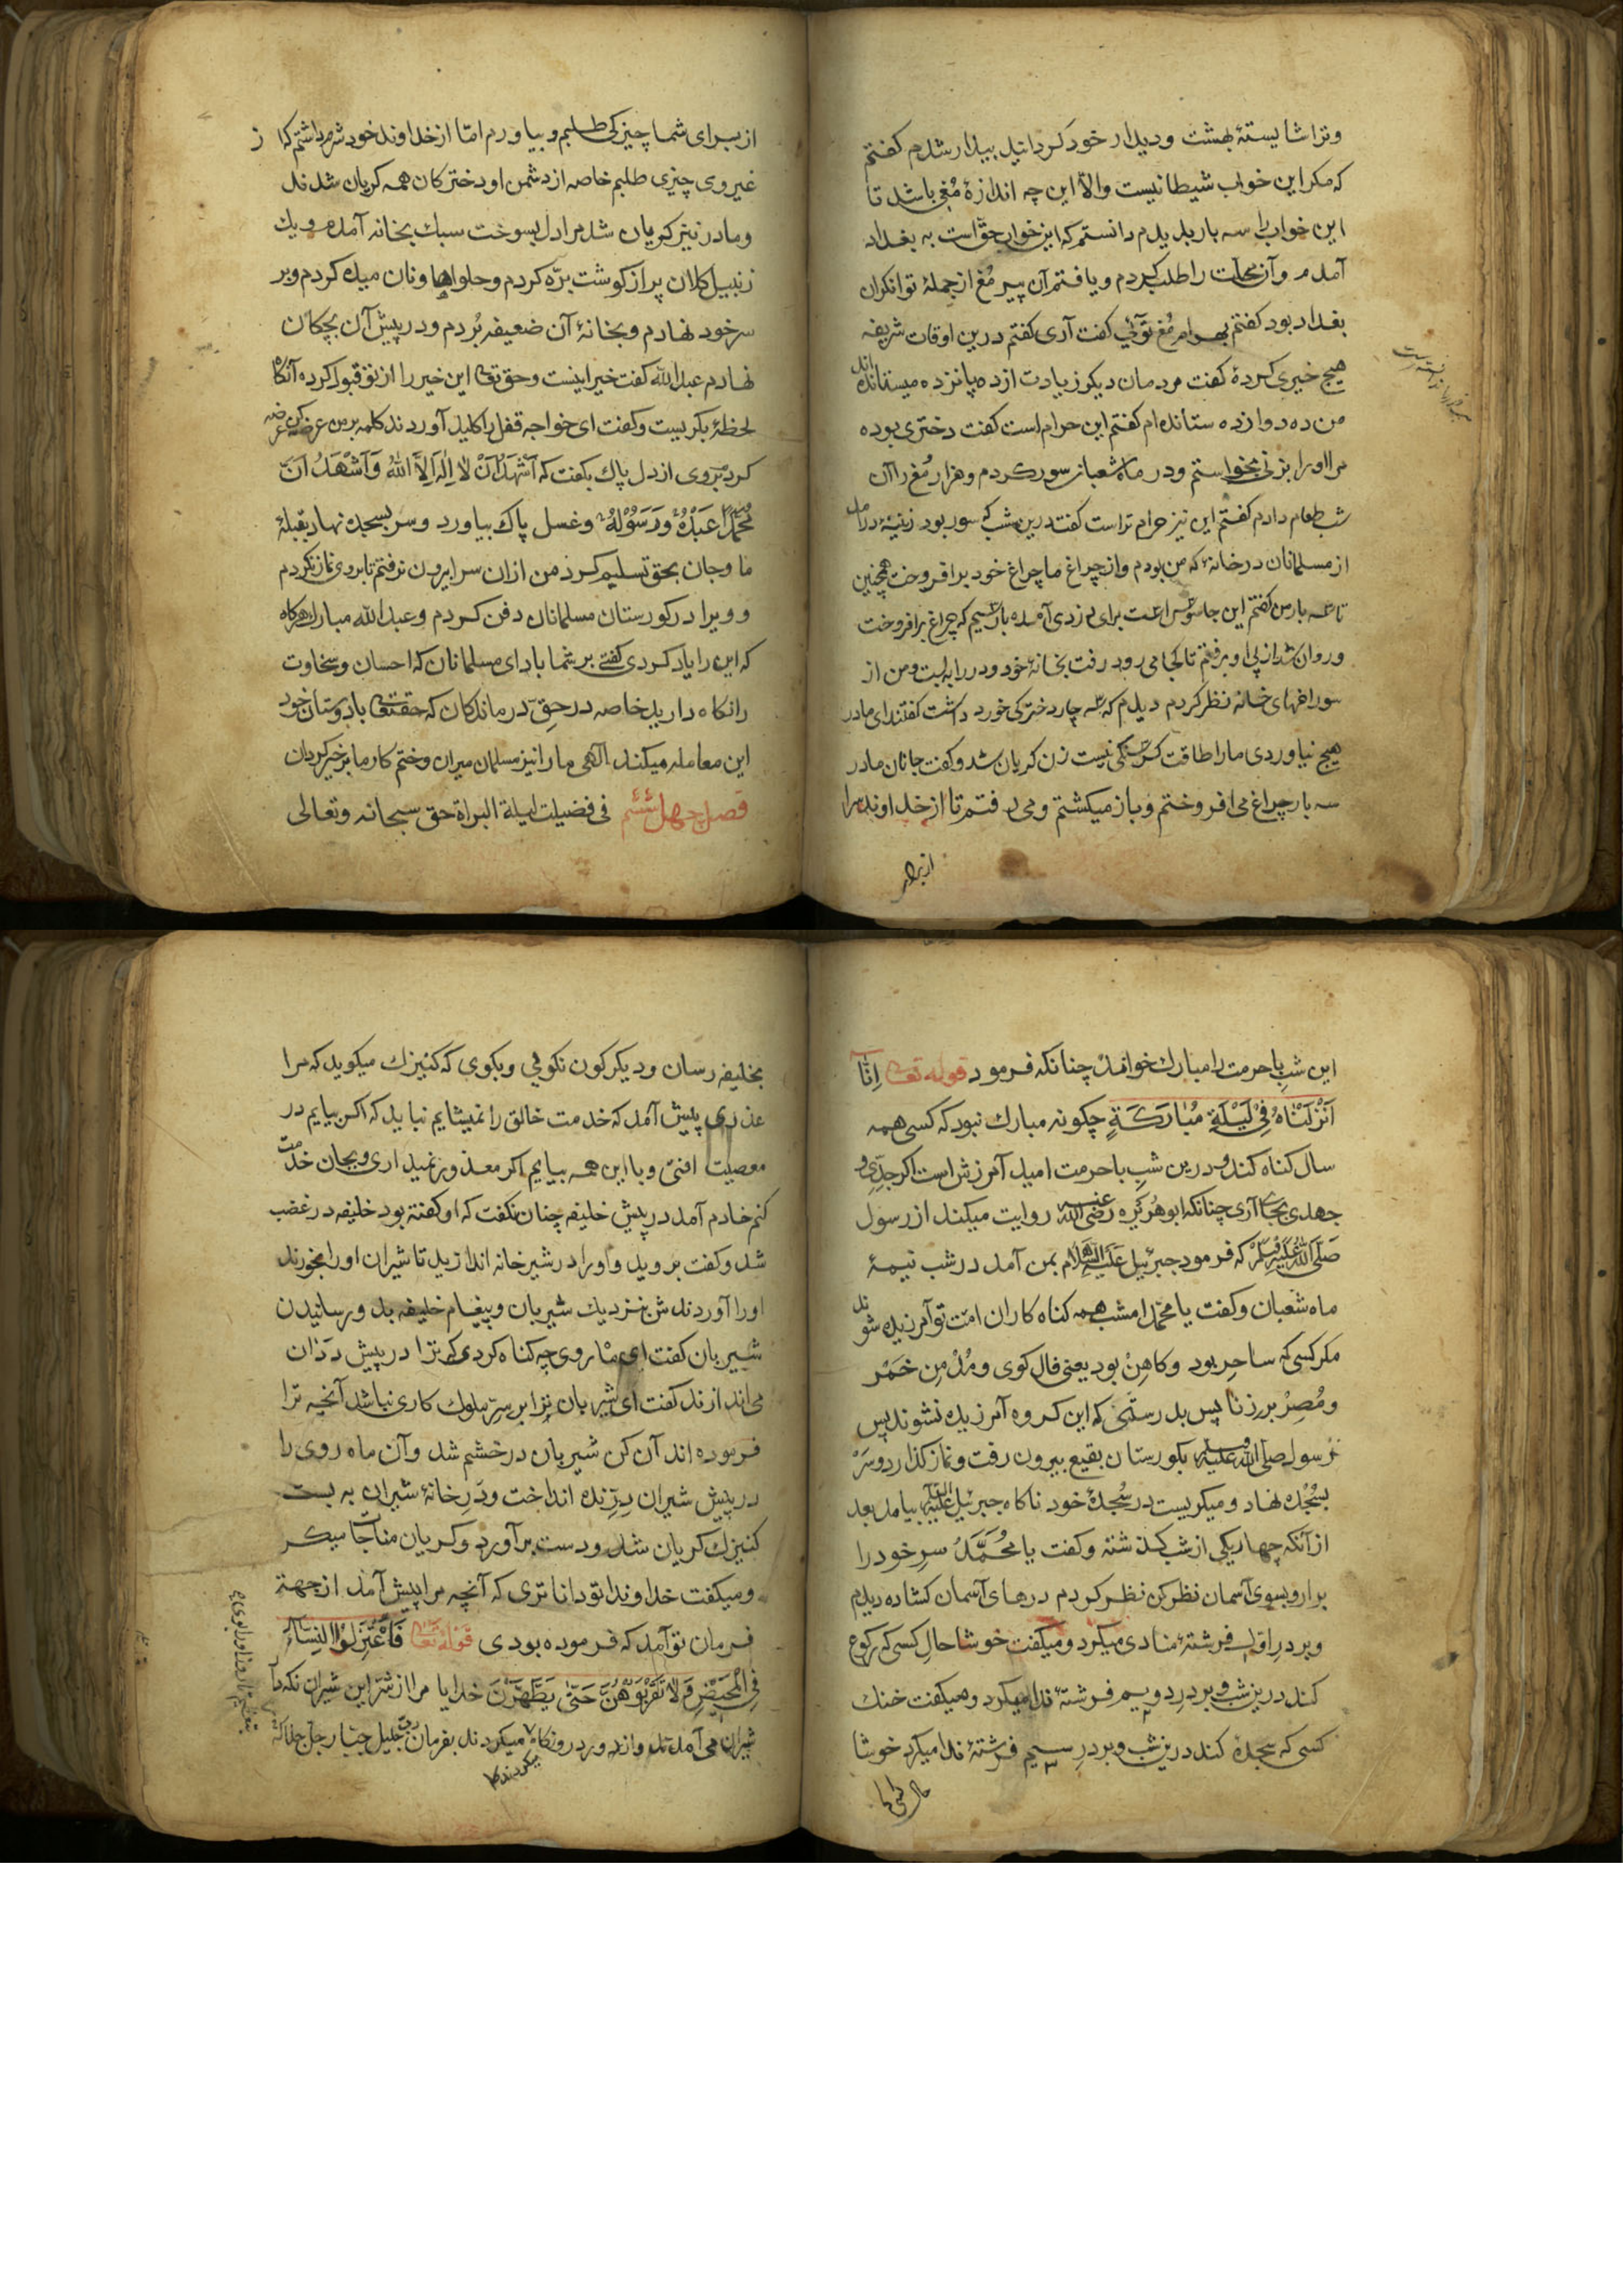 وترا شایستهٔ بهشت ودیدار خود کردانید بیدار شدم کفتم
که مکر این خواب شیطانیست والا این چه اندازهٔ مُغی باشد تا
این خواب را سه بار بدیدم دانستم که این خواب حق است به بغداد
آمدم وآن محلت را طلب کردم ویافتم آن پیر مُغ از جملهٔ توانکران
بغداد بود کفتم بهرام مُغ توٓئی کفت آری کفتم درین اوقات شریفه
هیچ خیری کردهٔ کفت مردمان دیکر زیادت از ده پانزده میستانند
من ده دوازده ستانده ام کفتم این حرام است کفت دختری بوده
مرا اورا بزنی بخواستم ودر ماه شعبان سور کردم وهزار مُغ را آن
شب طعام دادم کفتم این نیز حرام تراست کفت درین شب که سور بود زنیهٔ درآمد
از مسلمانان در خانهٔ که من بودم واز چراغ ما چراغ خود برافروخت همچنین
تا سه بار من کفتم این جاسوس است برای دزدی آمده باشیم که چراغ برافروخت
وروان شد از پی او برفتم تا کجا می رود رفت بخانهٔ خود ودر را به بست ومن از
سوراخهای خانه نظر کردم دیدم که سه چار دخترکی خورد داشت کفتند ای مادر
هیچ نیاوردی مارا طاقت کرسنکی نیست زن کریان شد وکفت جانان مادر
سه بار چراغ می افروختم وباز میکشتم ومی رفتم تا از خداوند مرا
از برای
از برای شما چیزکی طلبم وبیاورم امّا از خداوند خود شرم داشتم که از
غیر وی چیزی طلبم خاصه از دشمن او دخترکان همه کریان شدند
ومادر نیز کریان شد مرا دل بسوخت سبک بخانه آمدم ویک
زنبیل کلان پر از کوشت برّه کردم وحلواها ونان میده کردم وبر
سر خود نهادم وبخانهٔ آن ضعیفه بُردم ودر پیش آن بچکان
نهادم عبد الله کفت خیر اینست وحق تعا این خیر را از تو قبول کرده آنکاه
لحظهٔ بکریست وکفت ای خواجه قفل را کلید آوردند کلمه بر من عرضه کن عرضه
کردم بروی از دل پاک بکفت که اَشْهَدُ اَنْ لا اِلٰهَ اِلاَّ اللهُ وَاَشْهَدُ اَنَّ
مُحَمَّدًا عَبْدُهُ وَرَسُوْلُهُ وغسل پاک بیاورد وسر بسجده نهاد بقبلهٔ
ما وجان بحق تسلیم کرد من ازان سرا بیرون نرفتم تا بروی نماز نکردم
وویرا در کورستان مسلمانان دفن کردم وعبد الله مبارک هرکاه
که این را یاد کردی کفتی بر شما باد ای مسلمانان که احسان وسخاوت
را نکاه دارید خاصه در حقِ درماندکان که حقتعا با دوستان خود
این معامله میکند الٓهی مارا نیز مسلمان میران وختم کار ما بر خیر کردان
فصل چهل ششم فی فضیلت لیلة البراة حق سبحانه وتعالی
این شب باحرمت را مبارک خواند چنانکه فرمود قوله تعا اِنَّآ
اَنْزَلْنَاهُ فِیْ لَیْلَةٍ مُبٰارَکَةٍ چکونه مبارک نبود که کسی همه
سال کناه کند ودرین شبِ باحرمت امید آمرزش است اکر جدّی و
جهدی بجا آری چنانکه ابوهُرَیْره رَضِیَ اللهُ عَنه روایت میکند از رسول
صَلَّی اللهُ عَلَیْهِ وَسَلَّمْ که فرمود جبرئیل عَلَیْهِ السَّلام بمن آمد در شب نیمهٔ
ماه شعبان وکفت یا محمّد امشب همه کناه کاران امّت تو آمرزیده شوند
مکر کسی که ساحِر بود وکاهِنْ بود یعنی فال کوی ومُدْمِن خَمْر
ومُصِرْ برزنا پس بدرستی که این کروه آمرزیده نشوند پس
رسول صلی الله علیه وسلم بکورستان بقیع بیرون رفت ونماز کذارد وسَرْ
بسُجْده نهاد ومیکریست در سُجدهٔ خود ناکاه جبرئیل علیه السلام بیامد بعد
از آنکه چهار یکی از شب کذشته وکفت یا مُحَمَّدُ سرِ خود را
برار وبسوی آسمان نظر کن نظر کردم درهای آسمان کشاده دیدم
وبر درِ اوّل فرشتهٔ منادی میکرد ومیکفت خوشا حالِ کسی که رکوع
کند درین شب وبر درِ دویم فرشتهٔ ندا میکرد ومیکفت خنک
کسی که سجدهٔ کند درین شب وبر درِ سیم فرشتهٔ ندا میکرد خوشا
بخلیفه رسان ودیکر کون نکوئی وبکوی که کنیزک میکوید که مرا
عذری پیش آمد که خدمت خالق را نمیشایم نباید که اکر بیایم در
معصیت افتی وبا این همه بیایم اکر معذور نمیداری وبجان خدمت
کنم خادم آمد در پیش خلیفه چنان نکفت که او کفته بود خلیفه در غضب
شد وکفت بروید واورا در شیر خانه اندازید تا شیران اورا بخورند
اورا آوردندش بنزدیک شیربان وپیغام خلیفه بد ورسانیدن
شیربان کفت ای ماه روی چه کناه کردی که ترا در پیش ددان
می اندازند کفت ای شیربان ترا بر سرِّ ملوک کاری نباشد آنچه ترا
فرموده اند آن کن شیربان در خشم شد وآن ماه روی را
در پیش شیران درنده انداخت ودرِ خانهٔ شیران به بست
کنیزک کریان شد ودست برآورد وکریان مناجات میکر
ومیکفت خداوندا تو داناتری که آنچه مرا پیش آمد از جهة
فرمان تو آمد که فرموده بودی قوله تعا فَاعْتَزِلُوْا النِّسَآءَ
فِی الْمَحِیْضِ وَلاَ تَقْرَبُوْهُنَّ حَتّٰی یَطَّهَّرْنَ خدایا مرا از شرّ این شیران نکه دار
شیران می آمدند واز دور درو نکاه میکردند بفرمان ربّ جلیل جبّار جلّ جلاله